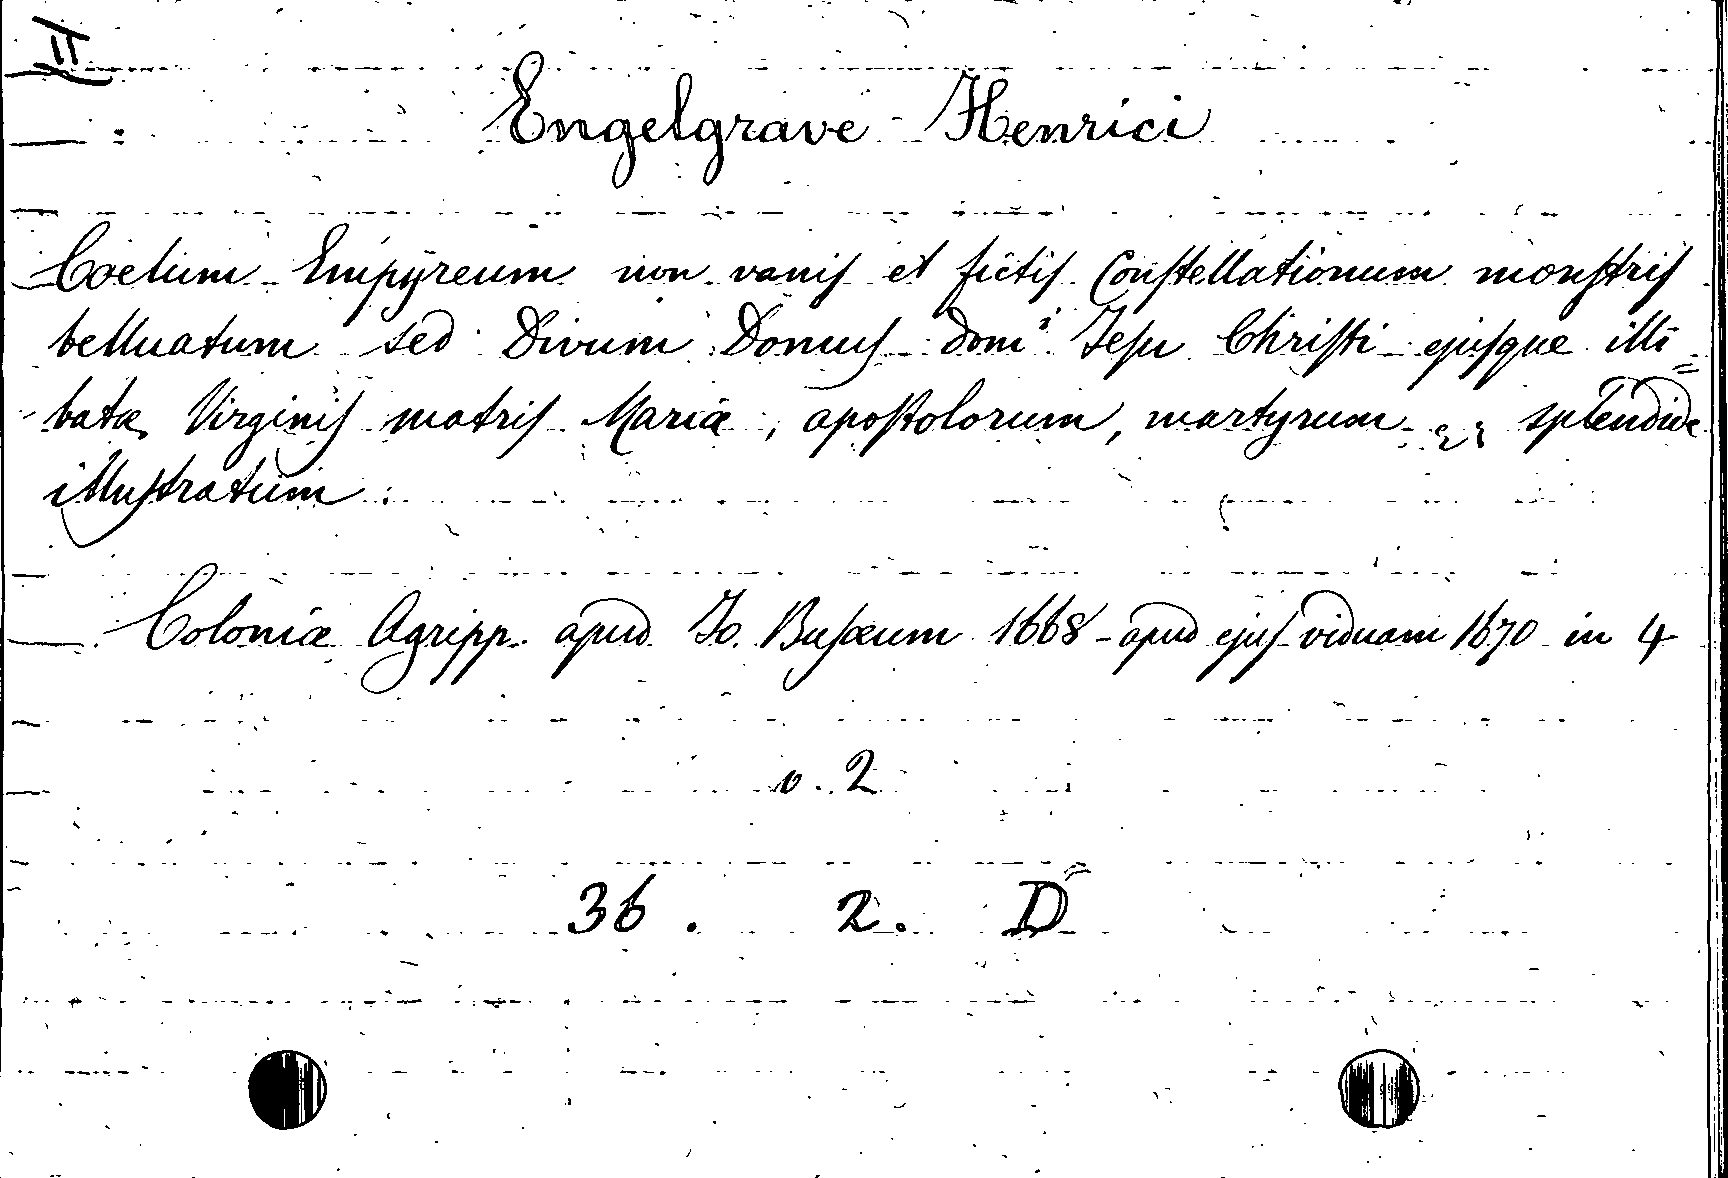 II
Engelgrave Henrici
Coelum Empÿreum non vanis et fictis Constellationum monstris
belluatum sed Divum Domus Domⁱ Jesu Christi ejusque illi=
batæ Virginis matris Mariæ, apostolorum, martyrum splendide
illustratum
Coloniæ Agripp. apud Jo. Busæum 1668 - apud ejus viduam 1670 in 4
v. 2
36. 2. D